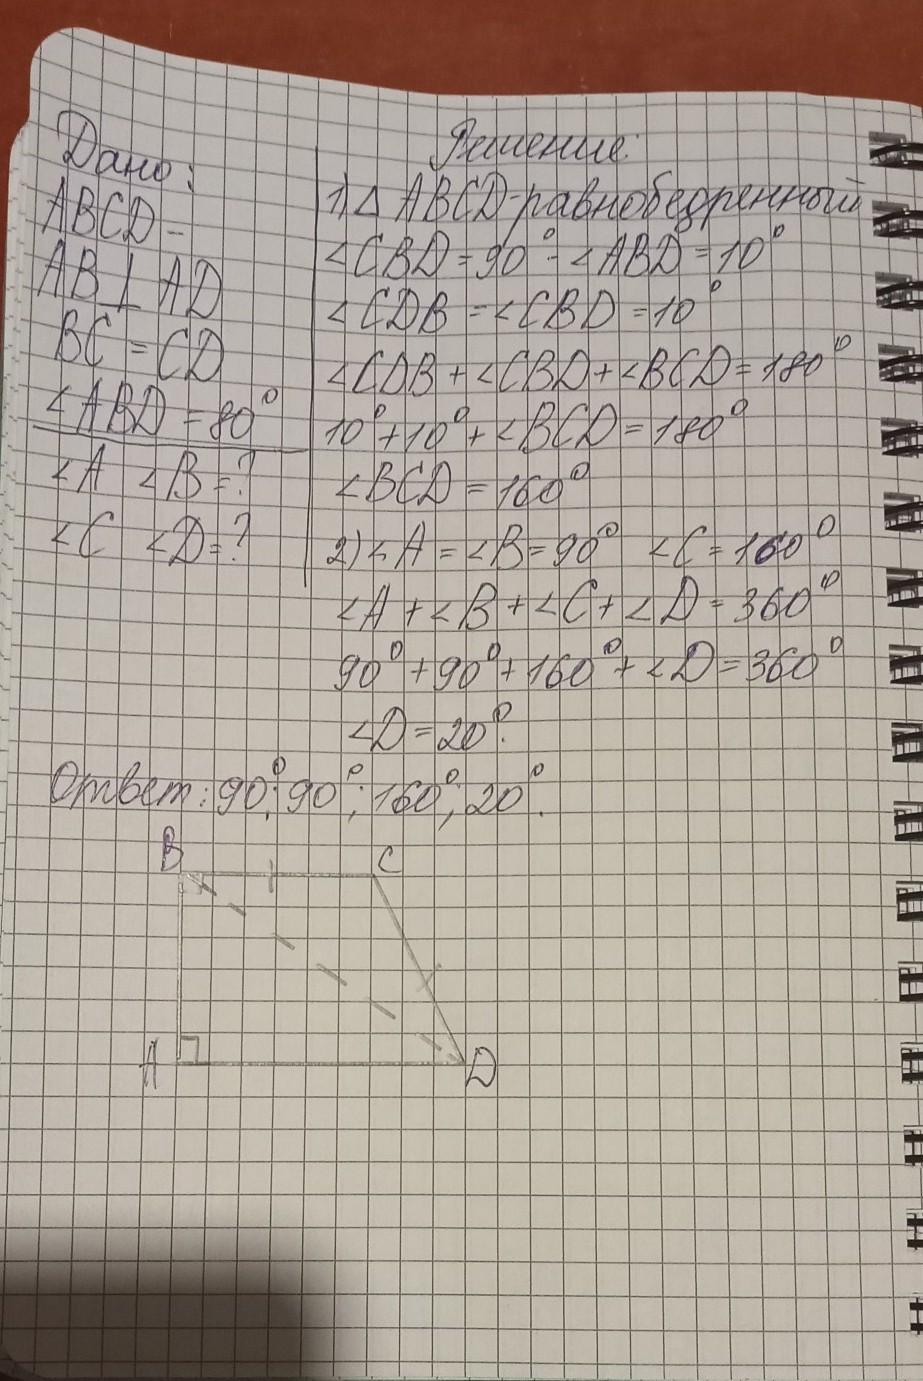 Дано:
ABCD -
AB ⊥ AD
BC = CD
∠ABD = 80°
∠A ∠B = ?
∠C ∠D = ?
Решение:
1) △ ABCD-равнобедренный
∠CBD = 90° - ∠ABD = 10°
∠CDB = ∠CBD = 10°
∠CDB + ∠CBD + ∠BCD = 180°
10° + 10° + ∠BCD = 180°
∠BCD = 160°
2) ∠A = ∠B = 90° ∠C = 160°
∠A + ∠B + ∠C + ∠D = 360°
90° + 90° + 160° + ∠D = 360°
∠D = 20°.
Ответ: 90°; 90°; 160°; 20°.
B C
A D